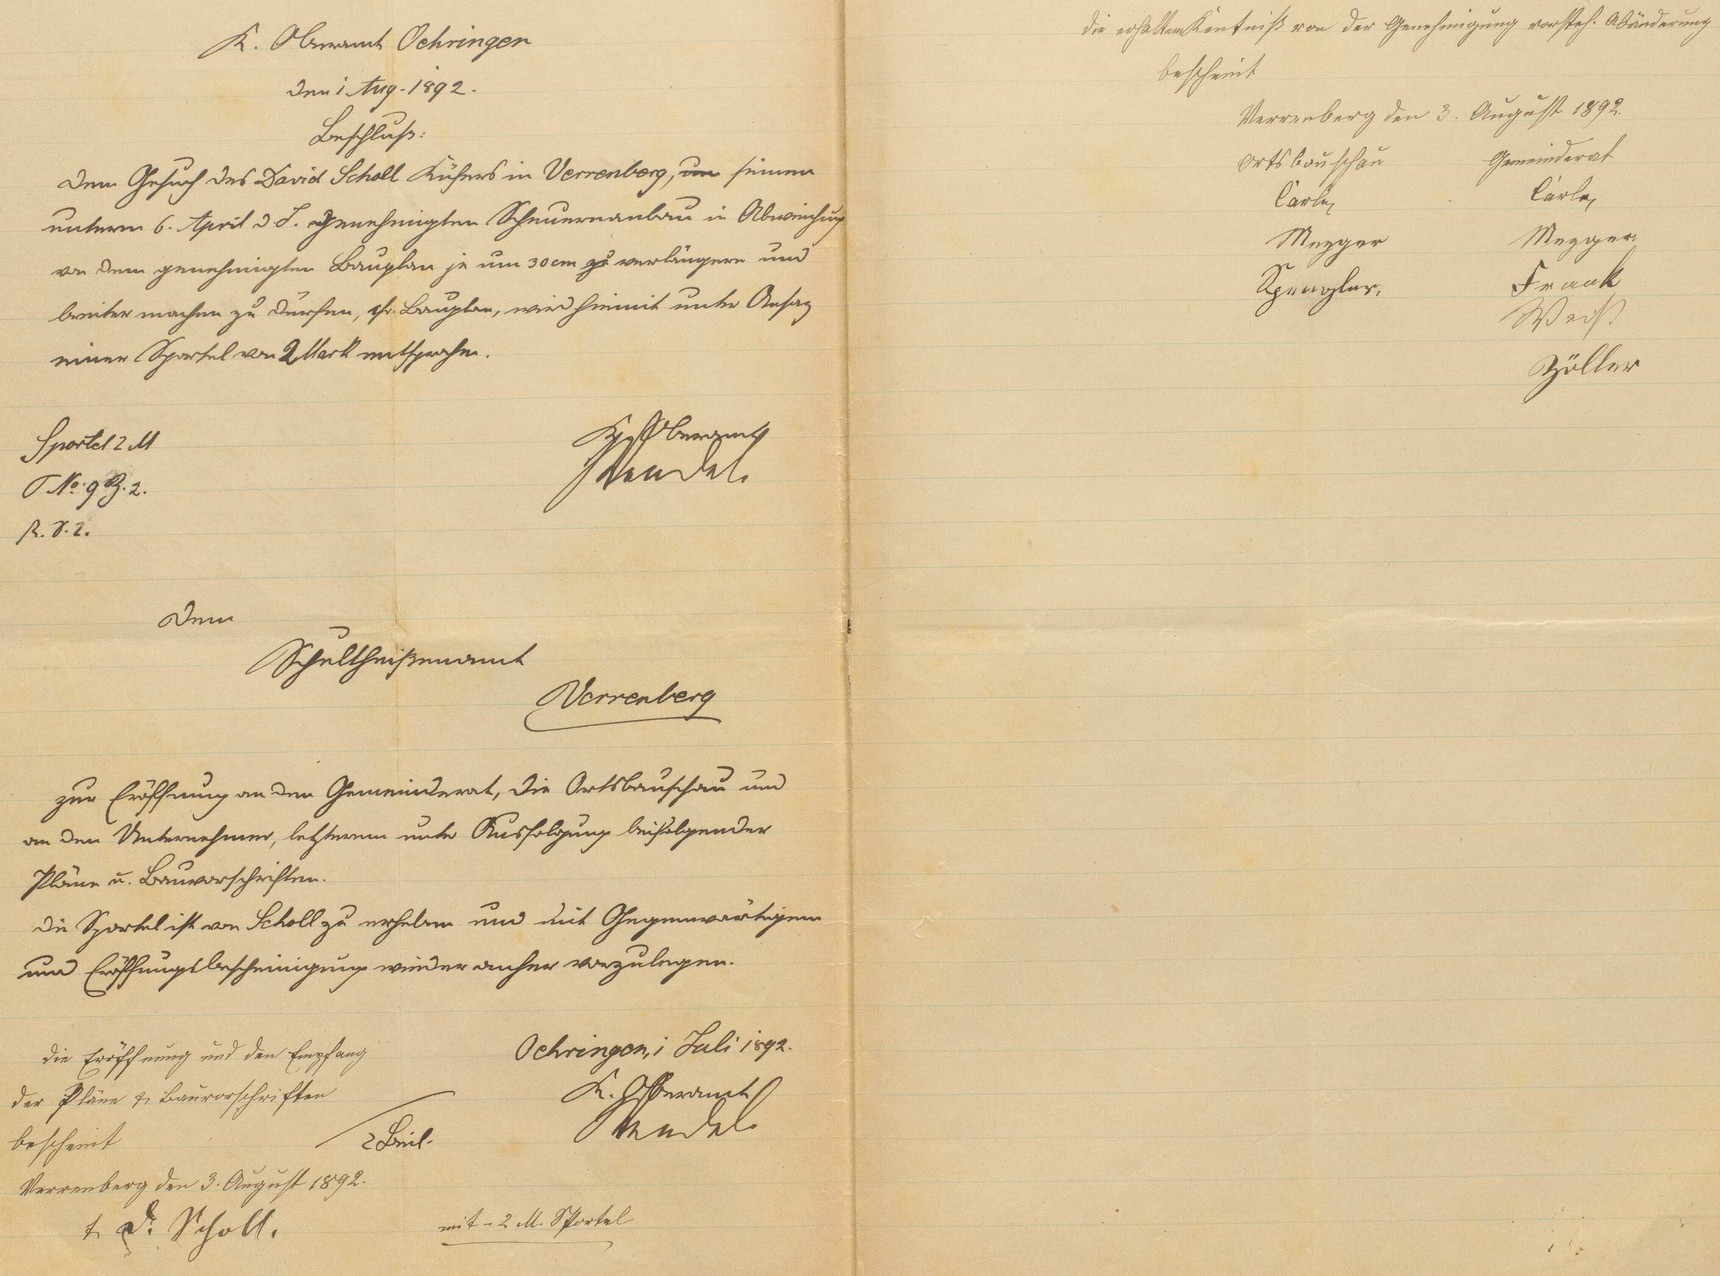 K. Oberamt Oehringen
den 1 Aug. 1892.
Beschluß:
Dem Gesuch des David Scholl Küfers in Verrenberg, um seinen
unterm 6. April d. J. genehmigten Scheuernanbau in Abweichung
von dem genehmigten Bauplan je um 30 cm zu verlängern und
breiter machen zu dürfen, Bauplan, wird hiemit unter Ansaz
einer Sportel von 2 Mark entsprochen.
Sportel 2 M
T No. 9 Z. 2.
R. S. 2.
K. Oberamt
Dem
Schultheißenamt
Verrenberg
zur Eröffnung an den Gemeinderat, die Ortsbauschau und
an den Unternehmer, letzterem unter Ausfolgung beifolgender
Pläne u. Bauvorschriften.
Die Sportel ist von Scholl zu erheben und mit Gegenwärtigem
und Eröffnungsbescheinigung wieder anher vorzulegen.
Oehringen, 1 Juli 1892.
K. Oberamt
2 Beil.
die Eröffnung und den Empfang
der Pläne & Bauvorschriften
bescheint
Verrenberg den 3. August 1892.
t. D. Scholl.
mit - 2 M. Sportel
die erhaltene Kentniß von der Genehmigung vorsteh. Abänderung
bescheint
Verrenberg den 3. August 1892.
Ortsbauschau Gemeinderat
Carle, Carle,
Mezger Mezger
Spengler, Frank
Weiß
Zöller